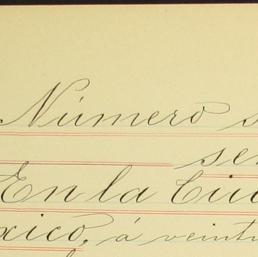 Número s
ser
En la Ciud
xico, á veintu